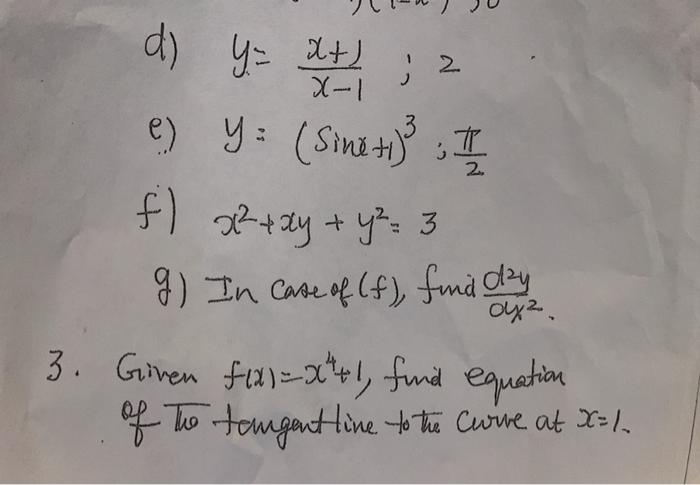 d) y = x+1 / x-1 ; 2
e) y = (Sinx+1)³ ; π/2
f) x²+xy+y² = 3
g) In case of (f), find d²y/dx².
3. Given f(x)=x⁴+1, find equation
of the tangent line to the curve at x=1.